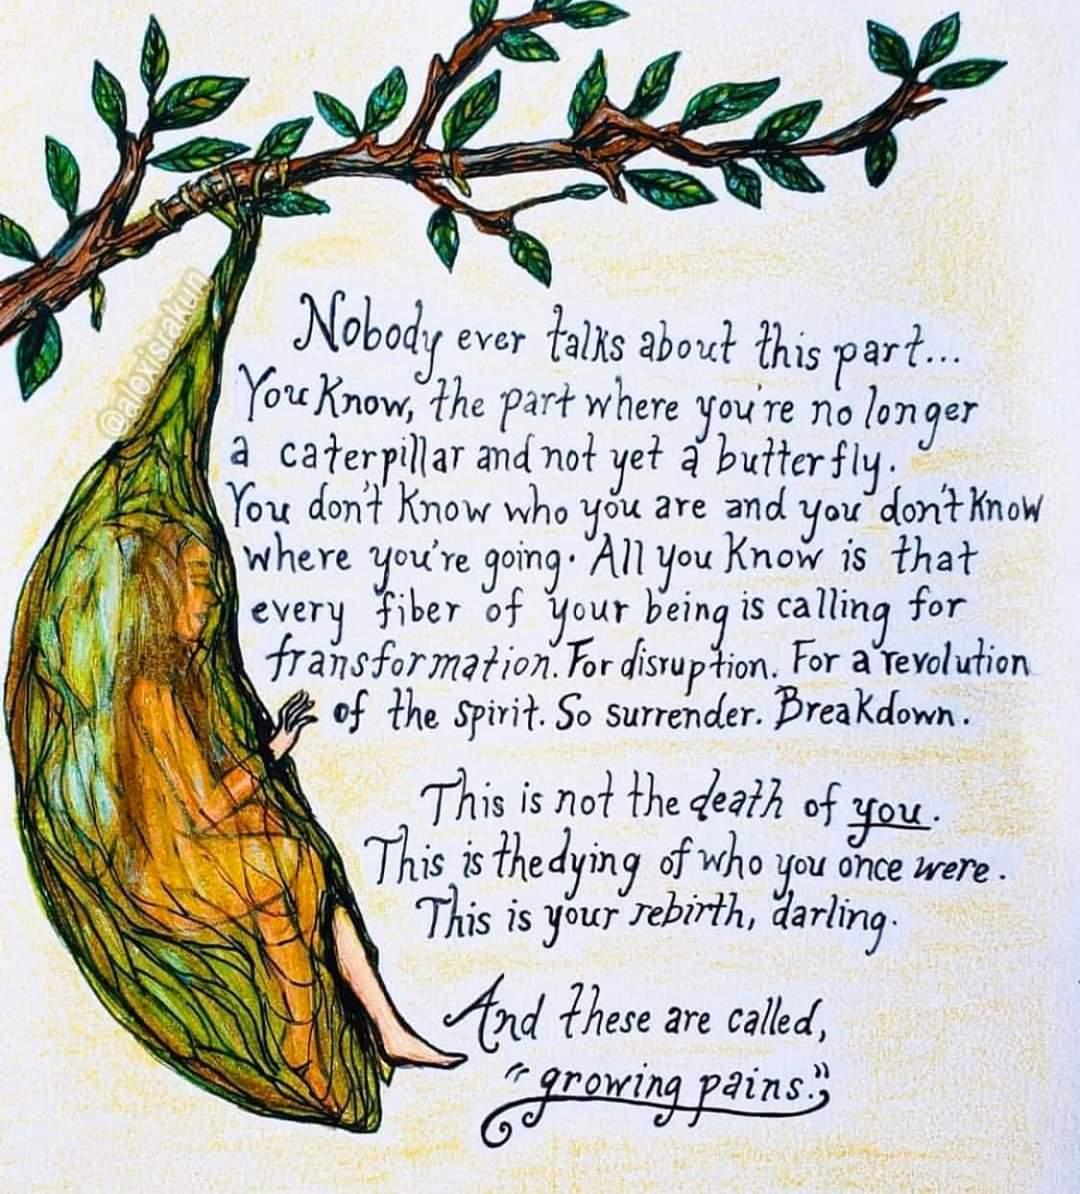 @alexisrakun
Nobody ever talks about this part...
You Know, the part where you're no longer
a caterpillar and not yet a butterfly.
You don't know who you are and you don't know
where you're going. All you know is that
every fiber of your being is calling for
transformation. For disruption. For a revolution
of the spirit. So surrender. Breakdown.
This is not the death of you.
This is the dying of who you once were.
This is your rebirth, darling.
And these are called,
"growing pains."